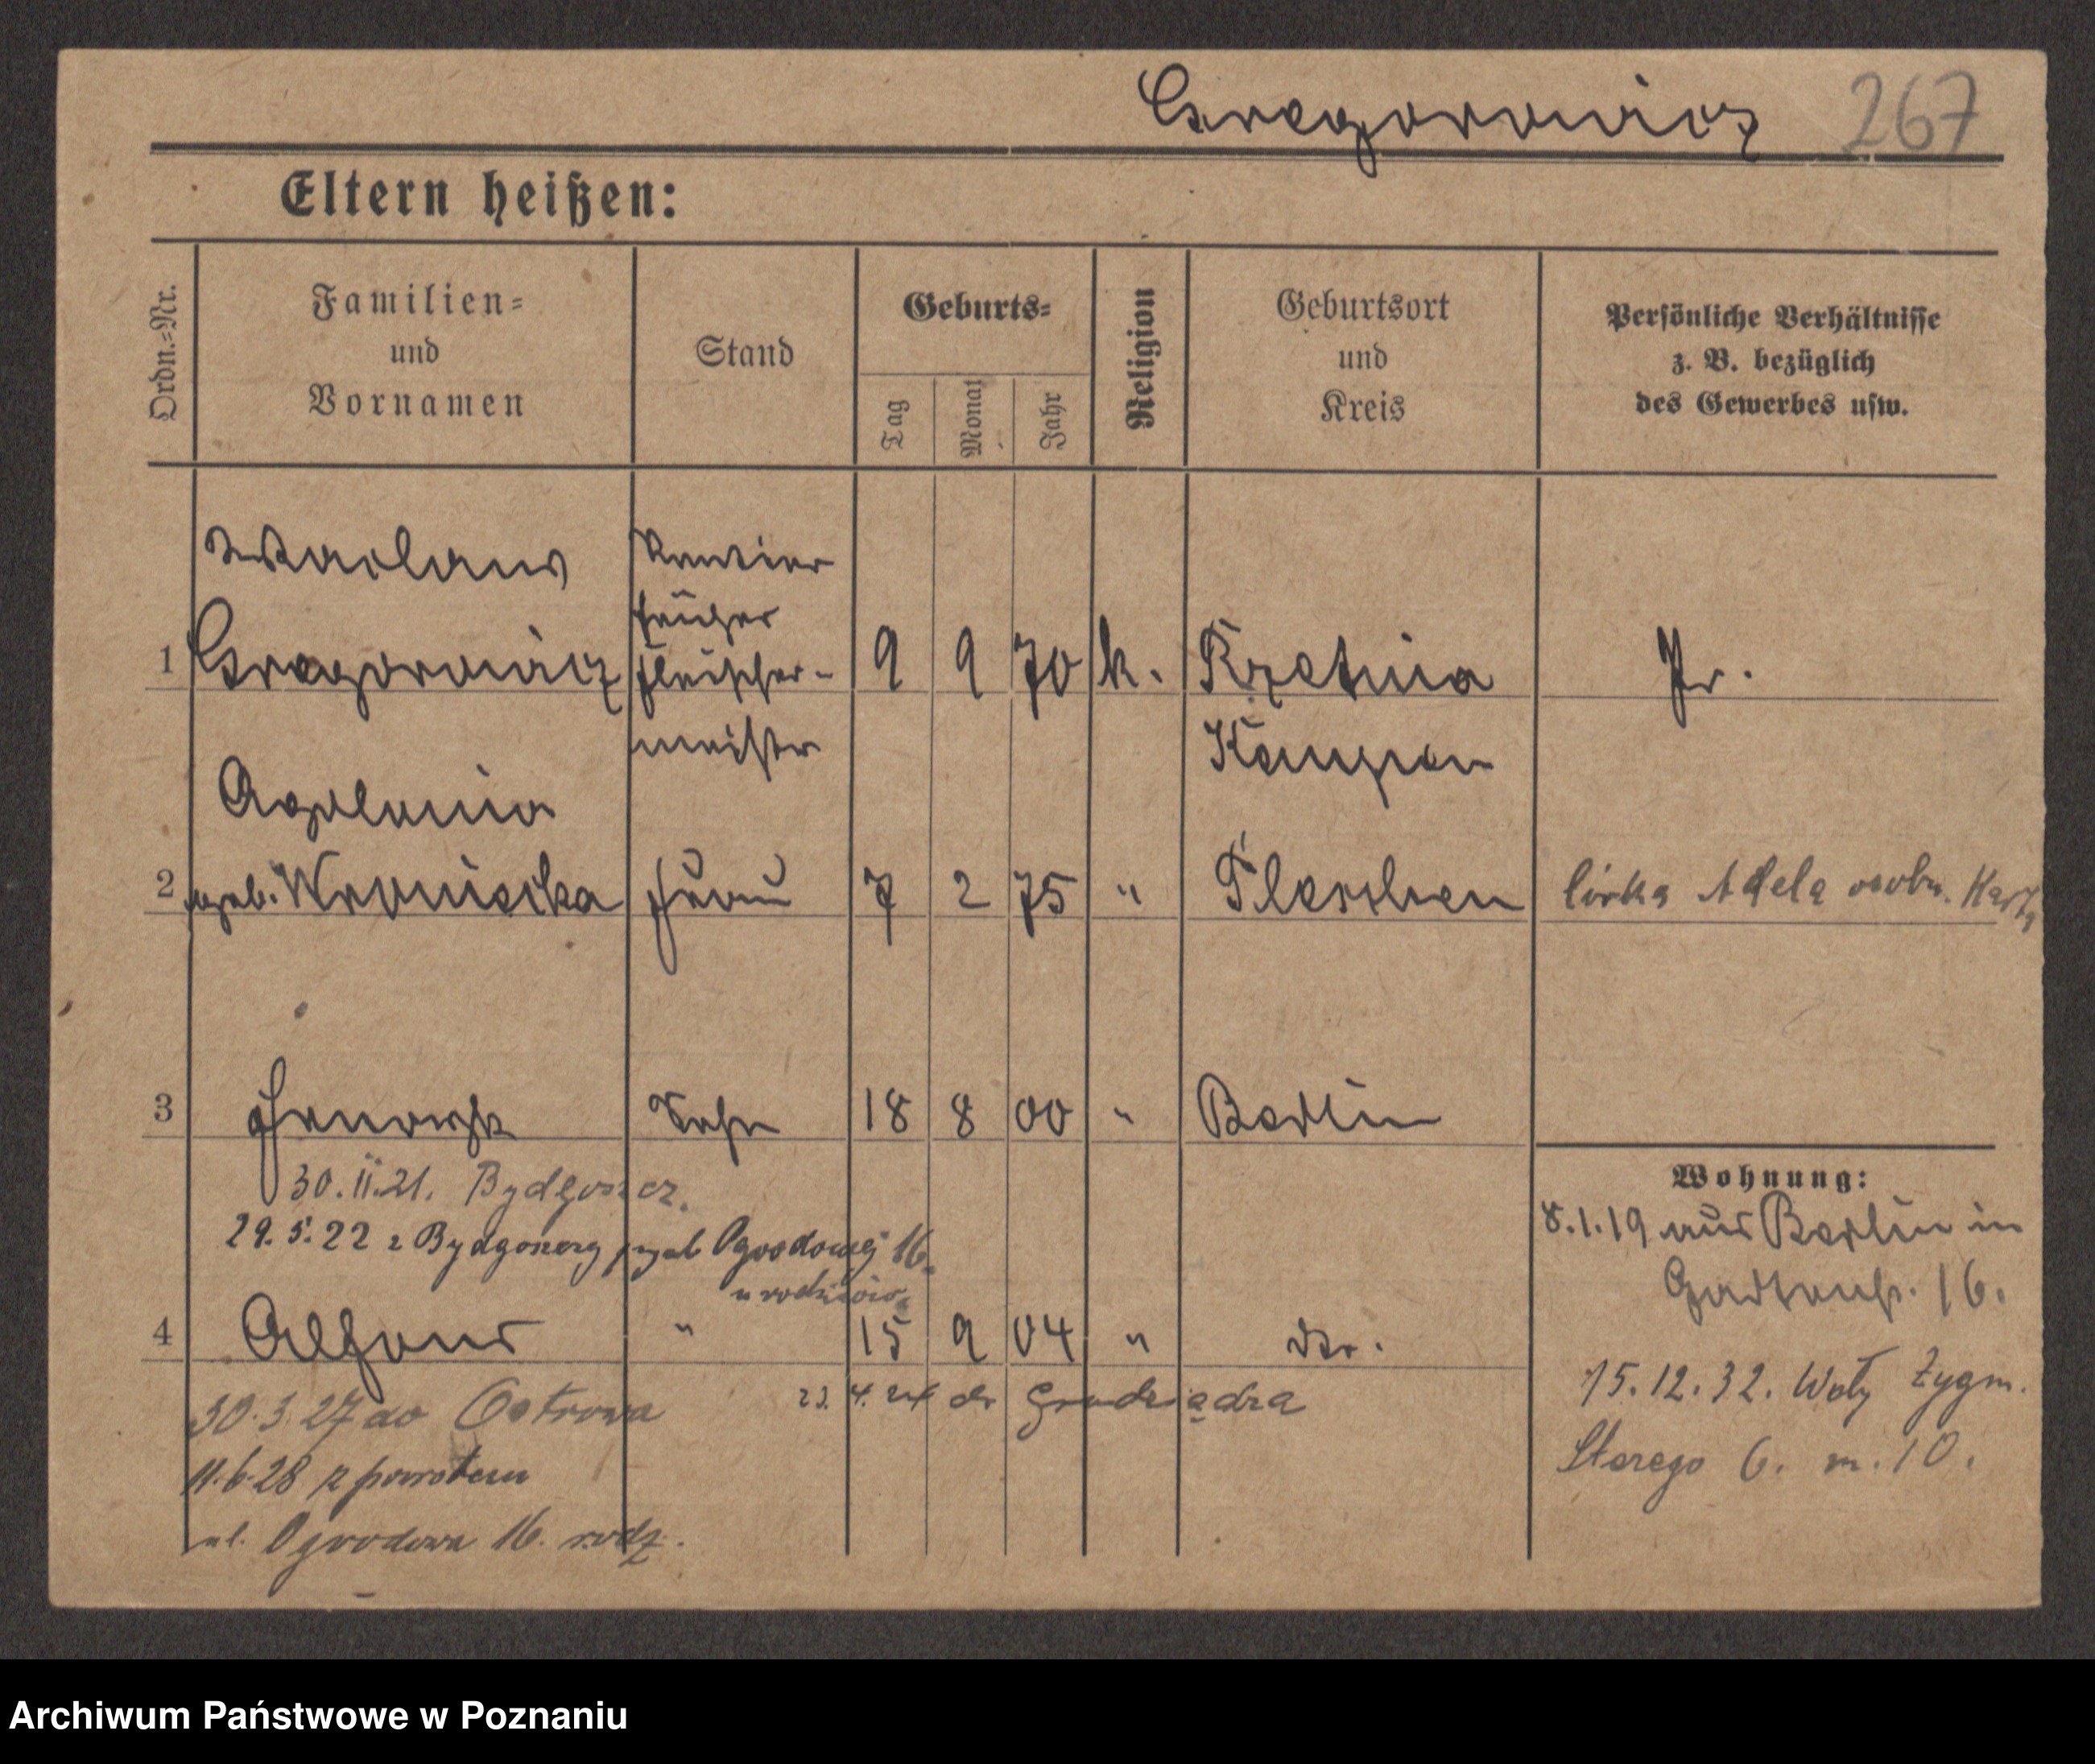 Gregorowicz 267
Eltern heißen:
Ordn.=Nr.
Familien=
und
Vornamen
Stand
Geburts=
Tag
Monat
Jahr
Religion
Geburtsort
und
Kreis
Persönliche Verhältnisse
z. B. bezüglich
des Gewerbes usw.
Rentier
früher
1 Gregorowicz Fleischer- 9 9 70 k. Pr.
meister
Kempen
Apolonia
2 geb. Frau 7 2 75 " Pleschen córka Adela osobn. Kartą
3 Sohn 18 8 00 " Berlin
30.11.21. Bydgoszcz.
29.5.22 z Bydgoszczy Ogrodowej 16.
u rodziców
4 Alfons " 15 9 04 " do.
23. 4. do Grudziądza
30.3.27 do Ostrowa
11.6.28 z powrotem
ul. Ogrodowa 16. rodz.
Wohnung:
8.1.19 aus Berlin in
Gartenstr. 16.
15.12.32. Wały Zygm.
Starego 6. m. 10.
Archiwum Państwowe w Poznaniu